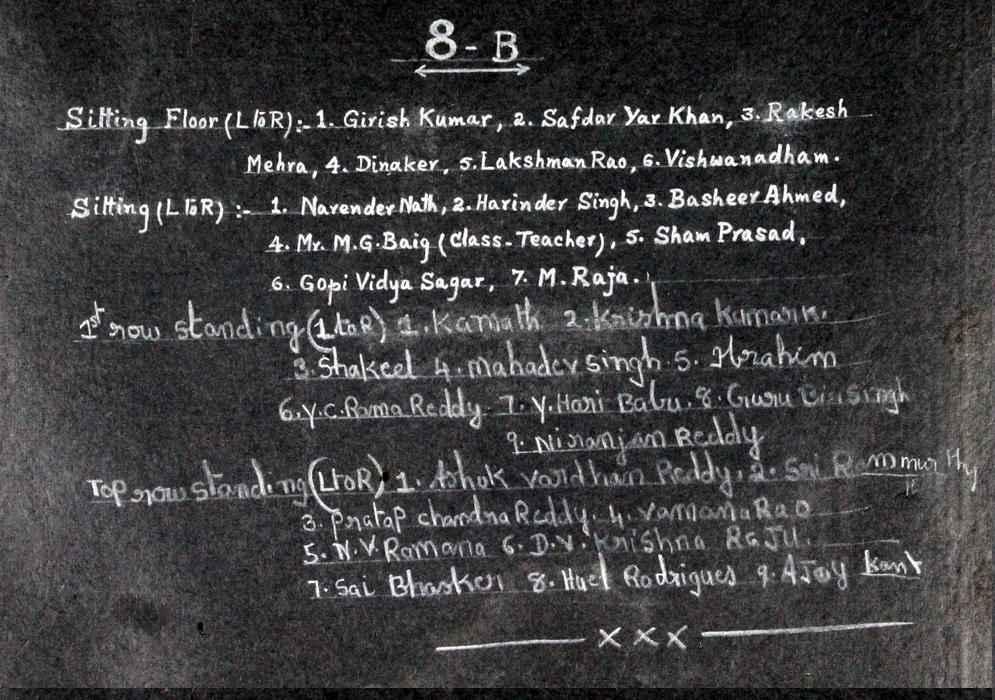 8 - B
Sitting Floor (L to R) :- 1. Girish Kumar, 2. Safdar Yar Khan, 3. Rakesh
Mehra, 4. Dinaker, 5. Lakshman Rao, 6. Vishwanadham.
Sitting (L to R) :- 1. Narender Nath, 2. Harinder Singh, 3. Basheer Ahmed,
4. Mr. M.G. Baig (Class-Teacher), 5. Sham Prasad,
6. Gopi Vidya Sagar, 7. M. Raja.
1st row standing (L to R) 1. Kamath 2. Krishna Kumar
3. Shakeel 4. Mahadev Singh 5. Ibrahim
6. Y.C. Rama Reddy 7. Y. Hari Babu. 8. Guru Singh
9. Niranjan Reddy
Top row standing (L to R) 1. Ashok Vardhan Reddy, 2. Sri Rammurthy
3. Pratap chandra Reddy. 4. Vamana Rao
5. N.V. Ramana 6. D.V. Krishna Raju.
7. Sai Bhasker 8. Huel Rodrigues 9. Ajoy Kant
x x x